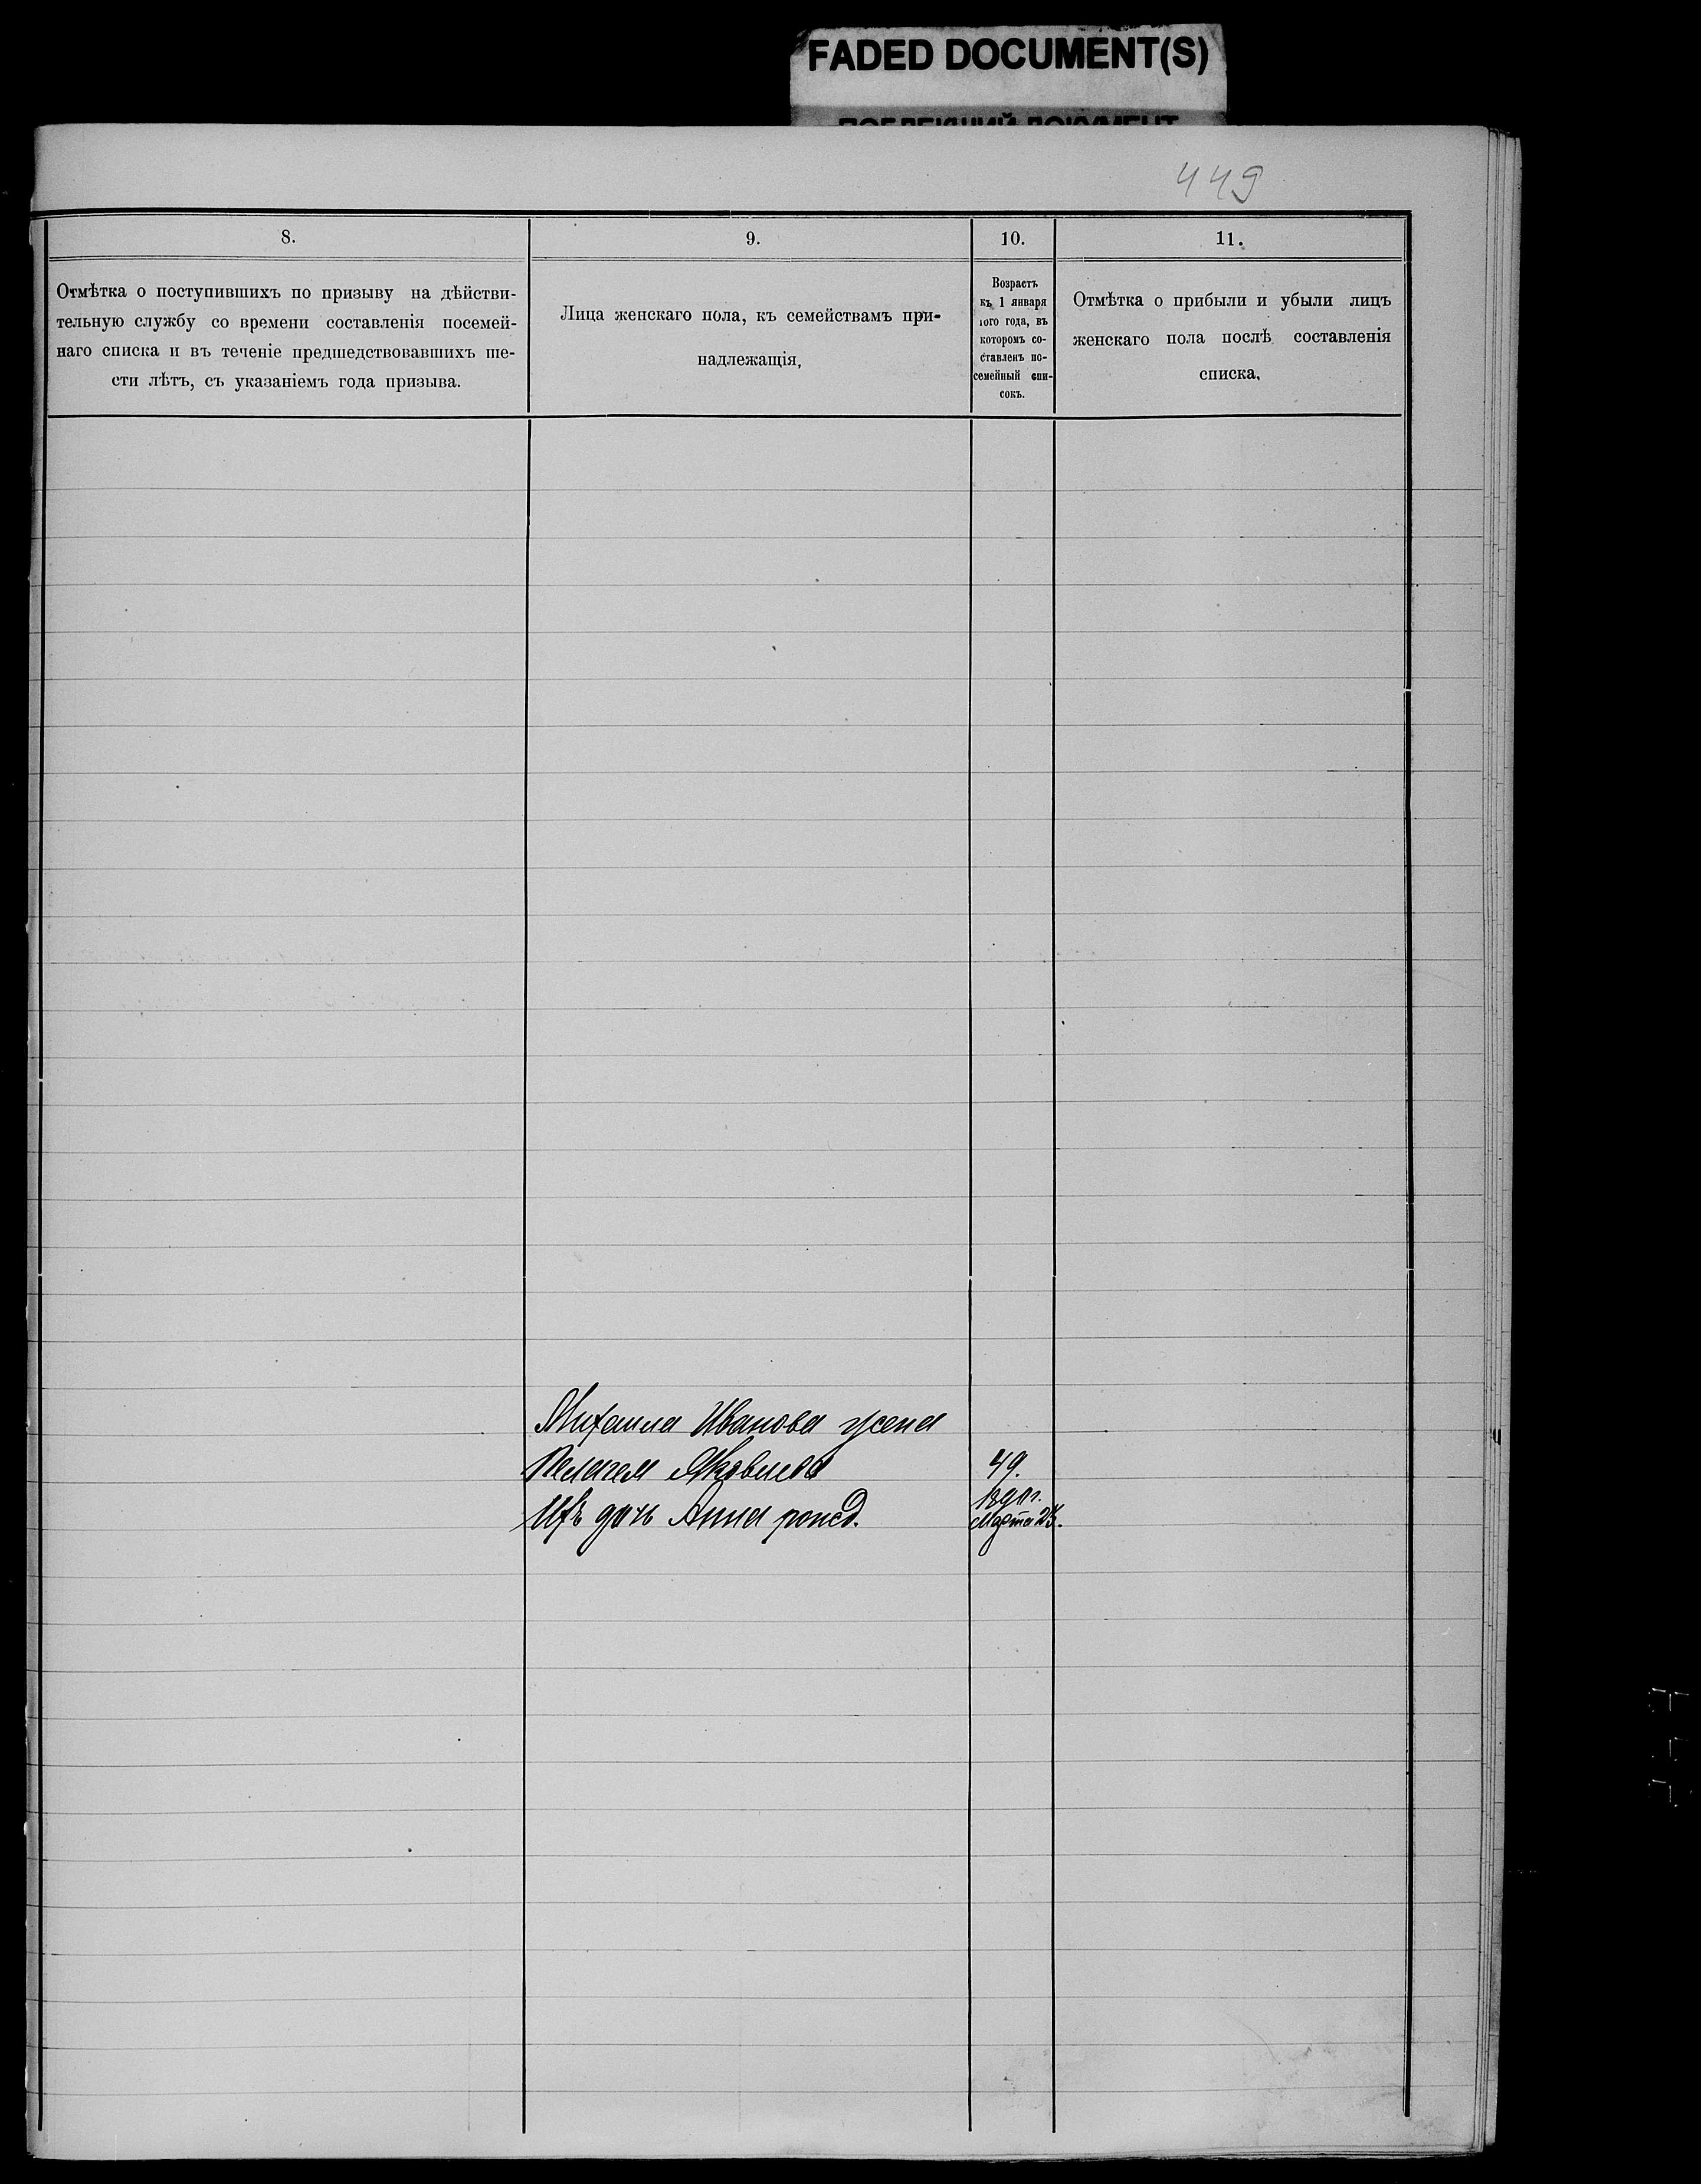 FADED DOCUMENT(S)
ПОБЛЕКШИЙ ДОКУМЕНТ
449
8.
9.
10.
11.
Отмѣтка о поступившихъ по призыву на дѣйстви-
тельную службу со времени составленія посемей-
наго списка и въ теченіе предшедствовавшихъ ше-
сти лѣтъ, съ указаніемъ года призыва.
Лица женскаго пола, къ семействамъ при-
надлежащія,
Возрастъ
къ 1 января
того года, въ
которомъ со-
ставленъ по-
семейный спи-
сокъ.
Отмѣтка о прибыли и убыли лицъ
женскаго пола послѣ составленія
списка,
Михаила Иванова жена
Пелагея Яковлева
49.
Ихъ дочь Анна рожд.
1890 г.
Марта